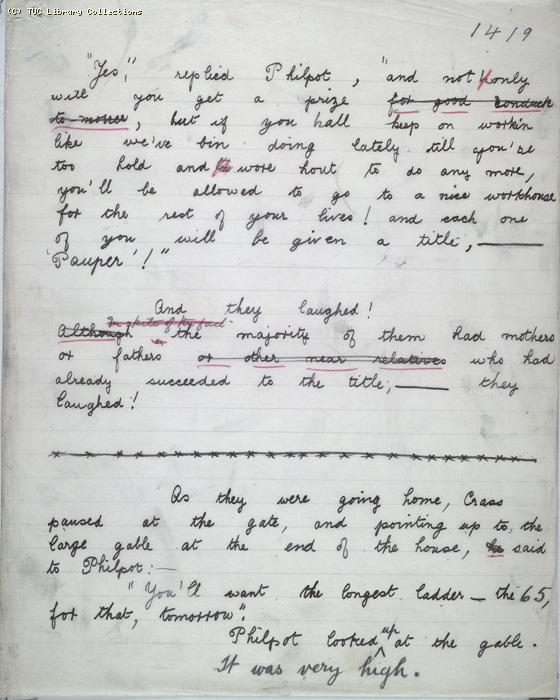 (C) TUC Library Collections
1419
"Yes," replied Philpot, "and not only
will you get a prize for good conduck
to mother, but if you hall keep on workin
like we've bin doing lately till you're
too hold and wore hout to do any more,
you'll be allowed to go to a nice workhouse
for the rest of your lives! and each one
of you will be given a title, ——
'Pauper'!"
And they laughed!
In spite of the fact
Although the majority of them had mothers
or fathers or other near relatives who had
already succeeded to the title, —— they
laughed!
As they were going home, Crass
paused at the gate, and pointing up to the
large gable at the end of the house, he said
to Philpot:—
"You'll want the longest ladder — the 65,
for that, tomorrow".
Philpot looked up at the gable.
It was very high.